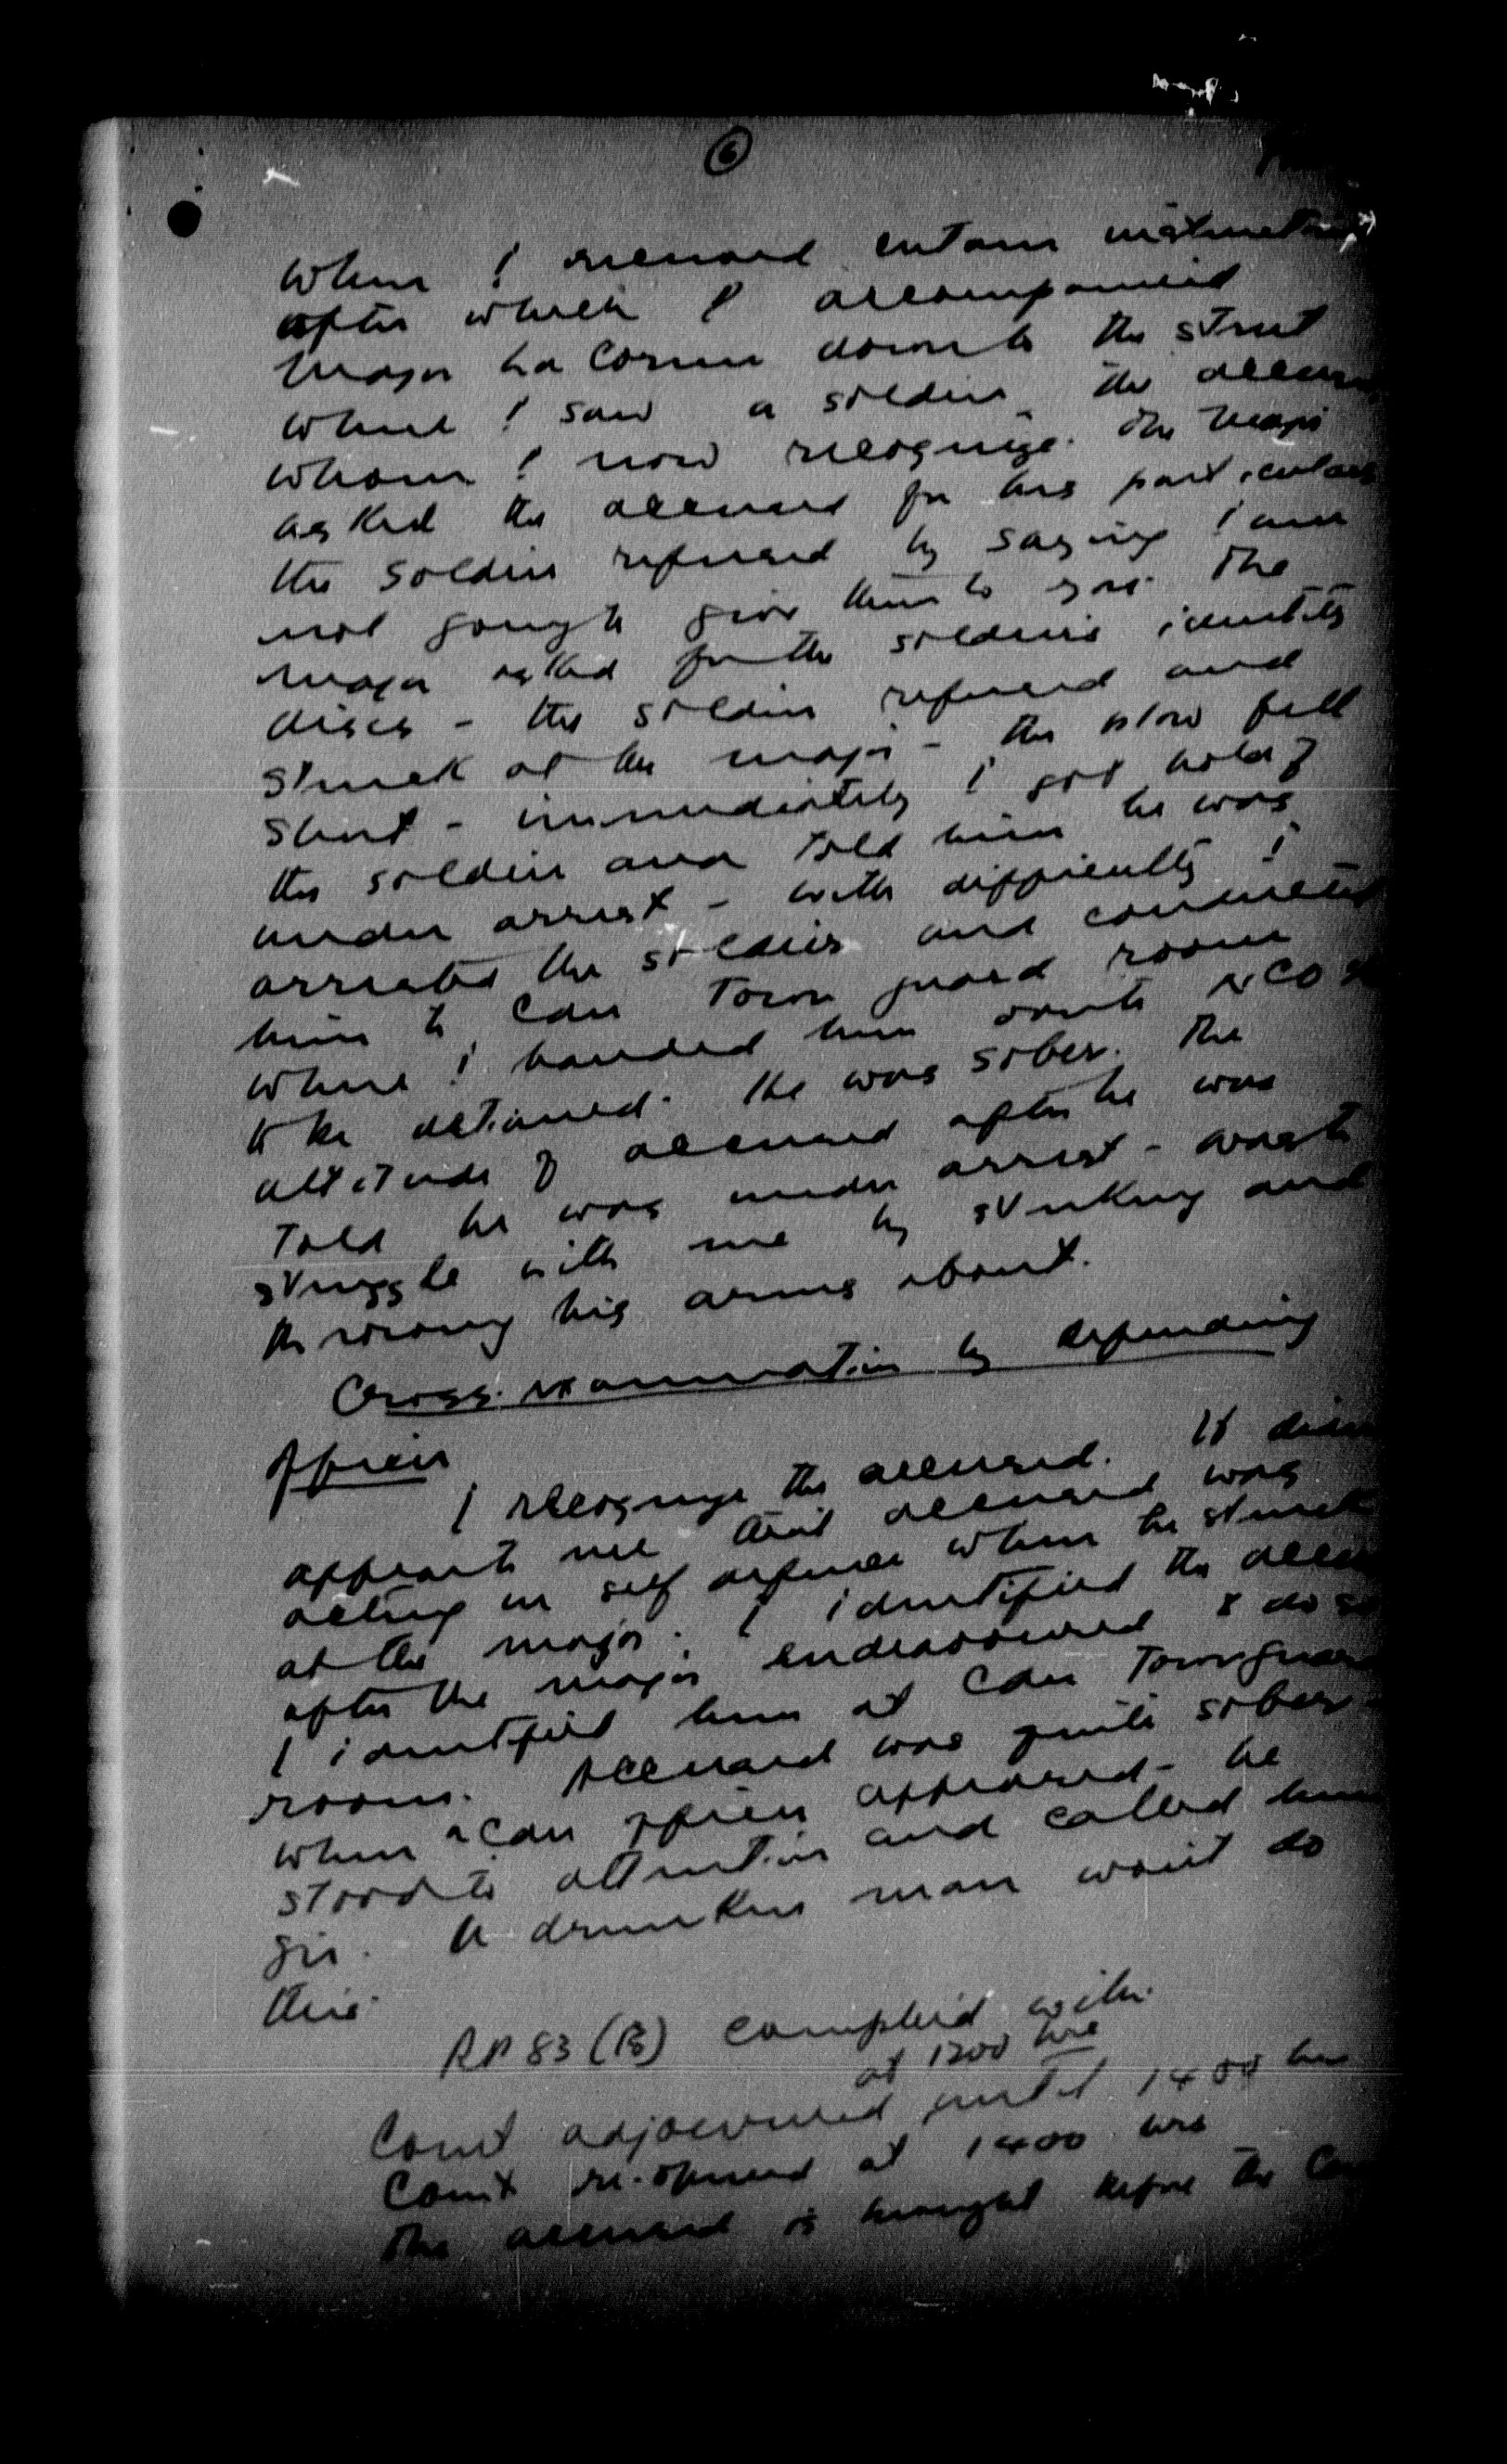 6
When I received certain instructions
after which I accompanied
Major La Corne down to the street
where I saw a soldier the accused
whom I now recognize. The Major
asked the accused for his particulars
the soldier refused by saying I am
not going to give them to you. The
major asked for the soldiers identity
discs - the soldier refused and
struck at the major - the blow fell
short - immediately I got hold of
the soldier and told him he was
under arrest - with difficulty I
arrested the soldier and conducted
him to Cdn Town guard room
where I handed him over to NCO
to be detained. He was sober. The
attitude of accused after he was
told he was under arrest - was to
struggle with me by striking and
throwing his arms about.
Cross. examination by defending
officer
I recognize the accused. It didn
appear to me that accused was
acting in self defence when he struck
at the major. I identified the accused
after the major endeavoured to do so
I identified him at Cdn Town guard
room. Accused was quite sober -
when a Cdn officer appeared - he
stood to attention and called him
sir. A drunken man won't do
this.
RP 83 (B) complied with.
at 1200 hrs
Court adjourned until 1400 hrs
Court re-opened at 1400 hrs
The accused is brought before the Court